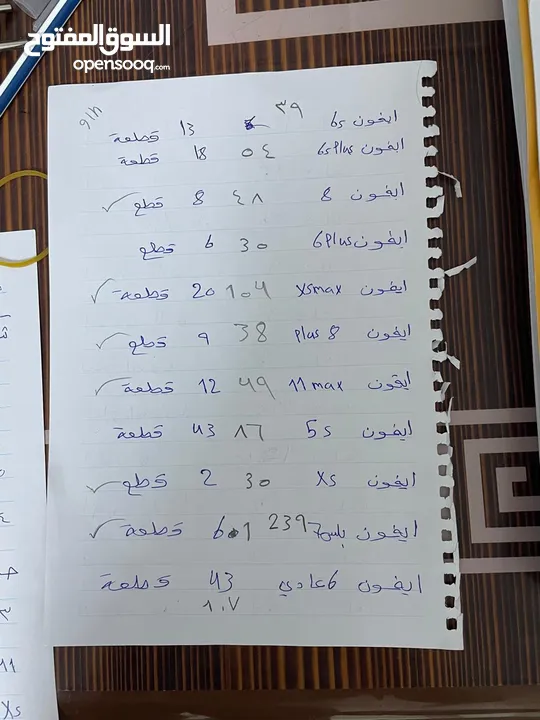 السوق المفتوح
opensooq.com
٩١٦
ايفون 6s ٣٩ 13 قطعة
ايفون 6s Plus ٥٤ 18 قطعة
ايفون 8 ٤٨ 8 قطع ✓
ايفون 6Plus 30 6 قطع
ايفون Xsmax ١٠٤ 20 قطعة ✓
ايفون Plus 8 38 9 قطع ✓
ايفون 11 max 49 12 قطعة ✓
ايفون 5s ٨٦ 43 قطعة
ايفون Xs 30 2 قطع ✓
ايفون بلس 7 239 601 قطعة ✓
ايفون 6 عادي 43 قطعة
١٠٧
11
Xs